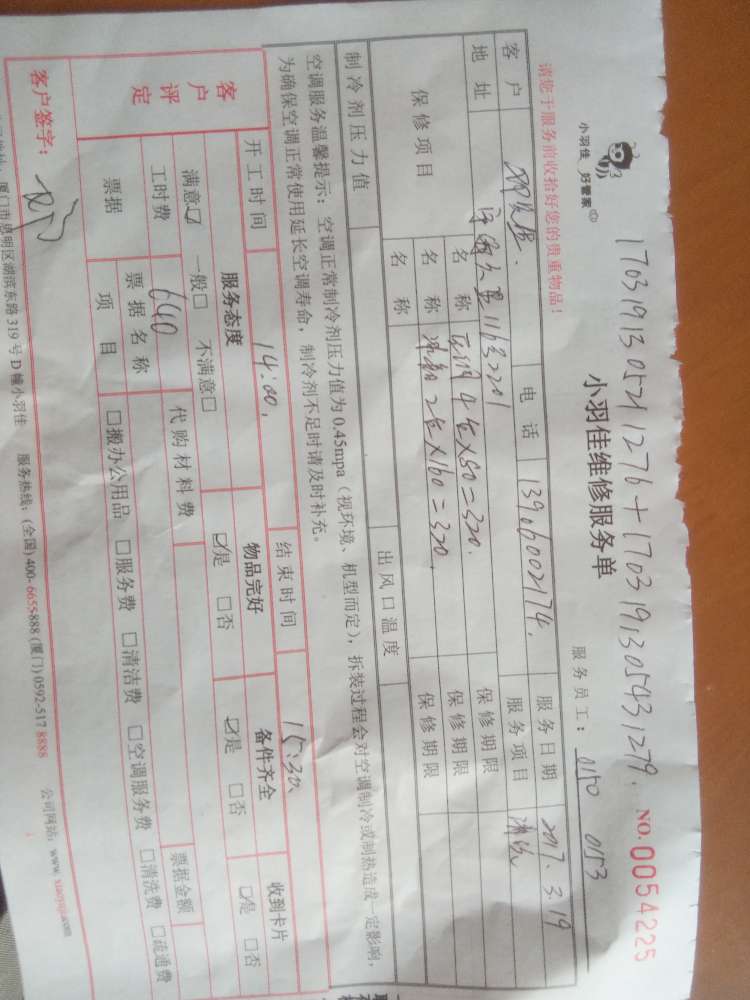 1703191305211276+1703191305431279.
小羽佳 好管家
小羽佳维修服务单
NO.0054225
请您于服务前收拾好您的贵重物品!
服务员工: 0150 053
客户 电话 13906002174. 服务日期 2017.3.19
地址 116号2201 服务项目 清洗
保修项目 名称 4台×80=320. 保修期限
名称 2台×160=320. 保修期限
名称 保修期限
制冷剂压力值 出风口温度
空调服务温馨提示:空调正常制冷剂压力值为0.45mpa(视环境、机型而定),拆装过程会对空调制冷或制热造成一定影响,
为确保空调正常使用延长空调寿命,制冷剂不足时请及时补充。
开工时间 14:00, 结束时间 15:30
客户评定 服务态度 物品完好 备件齐全 收到卡片
满意☑ 一般□ 不满意□ ☑是 □否 ☑是 □否 ☑是 □否
工时费 640 代购材料费 票据金额
票据 票据名称
项目 □搬办公用品 □服务费 □清洁费 □空调服务费 □清洗费 □疏通费
客户签字:
厦门市思明区湖滨东路319号D幢小羽佳 服务热线:(全国)400-6655-888 (厦门)0592-517 8888 公司网站:www.xiaoyujia.com